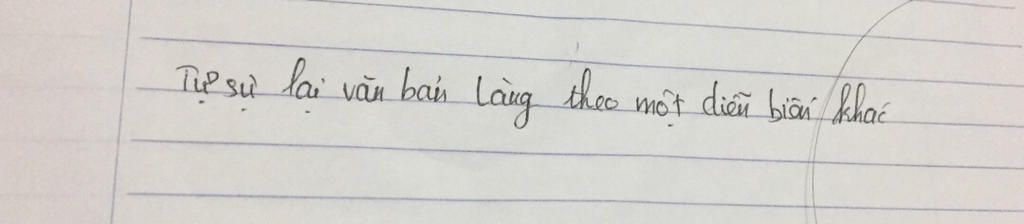 Tự sự lại văn bản làng theo một diễn biến khác